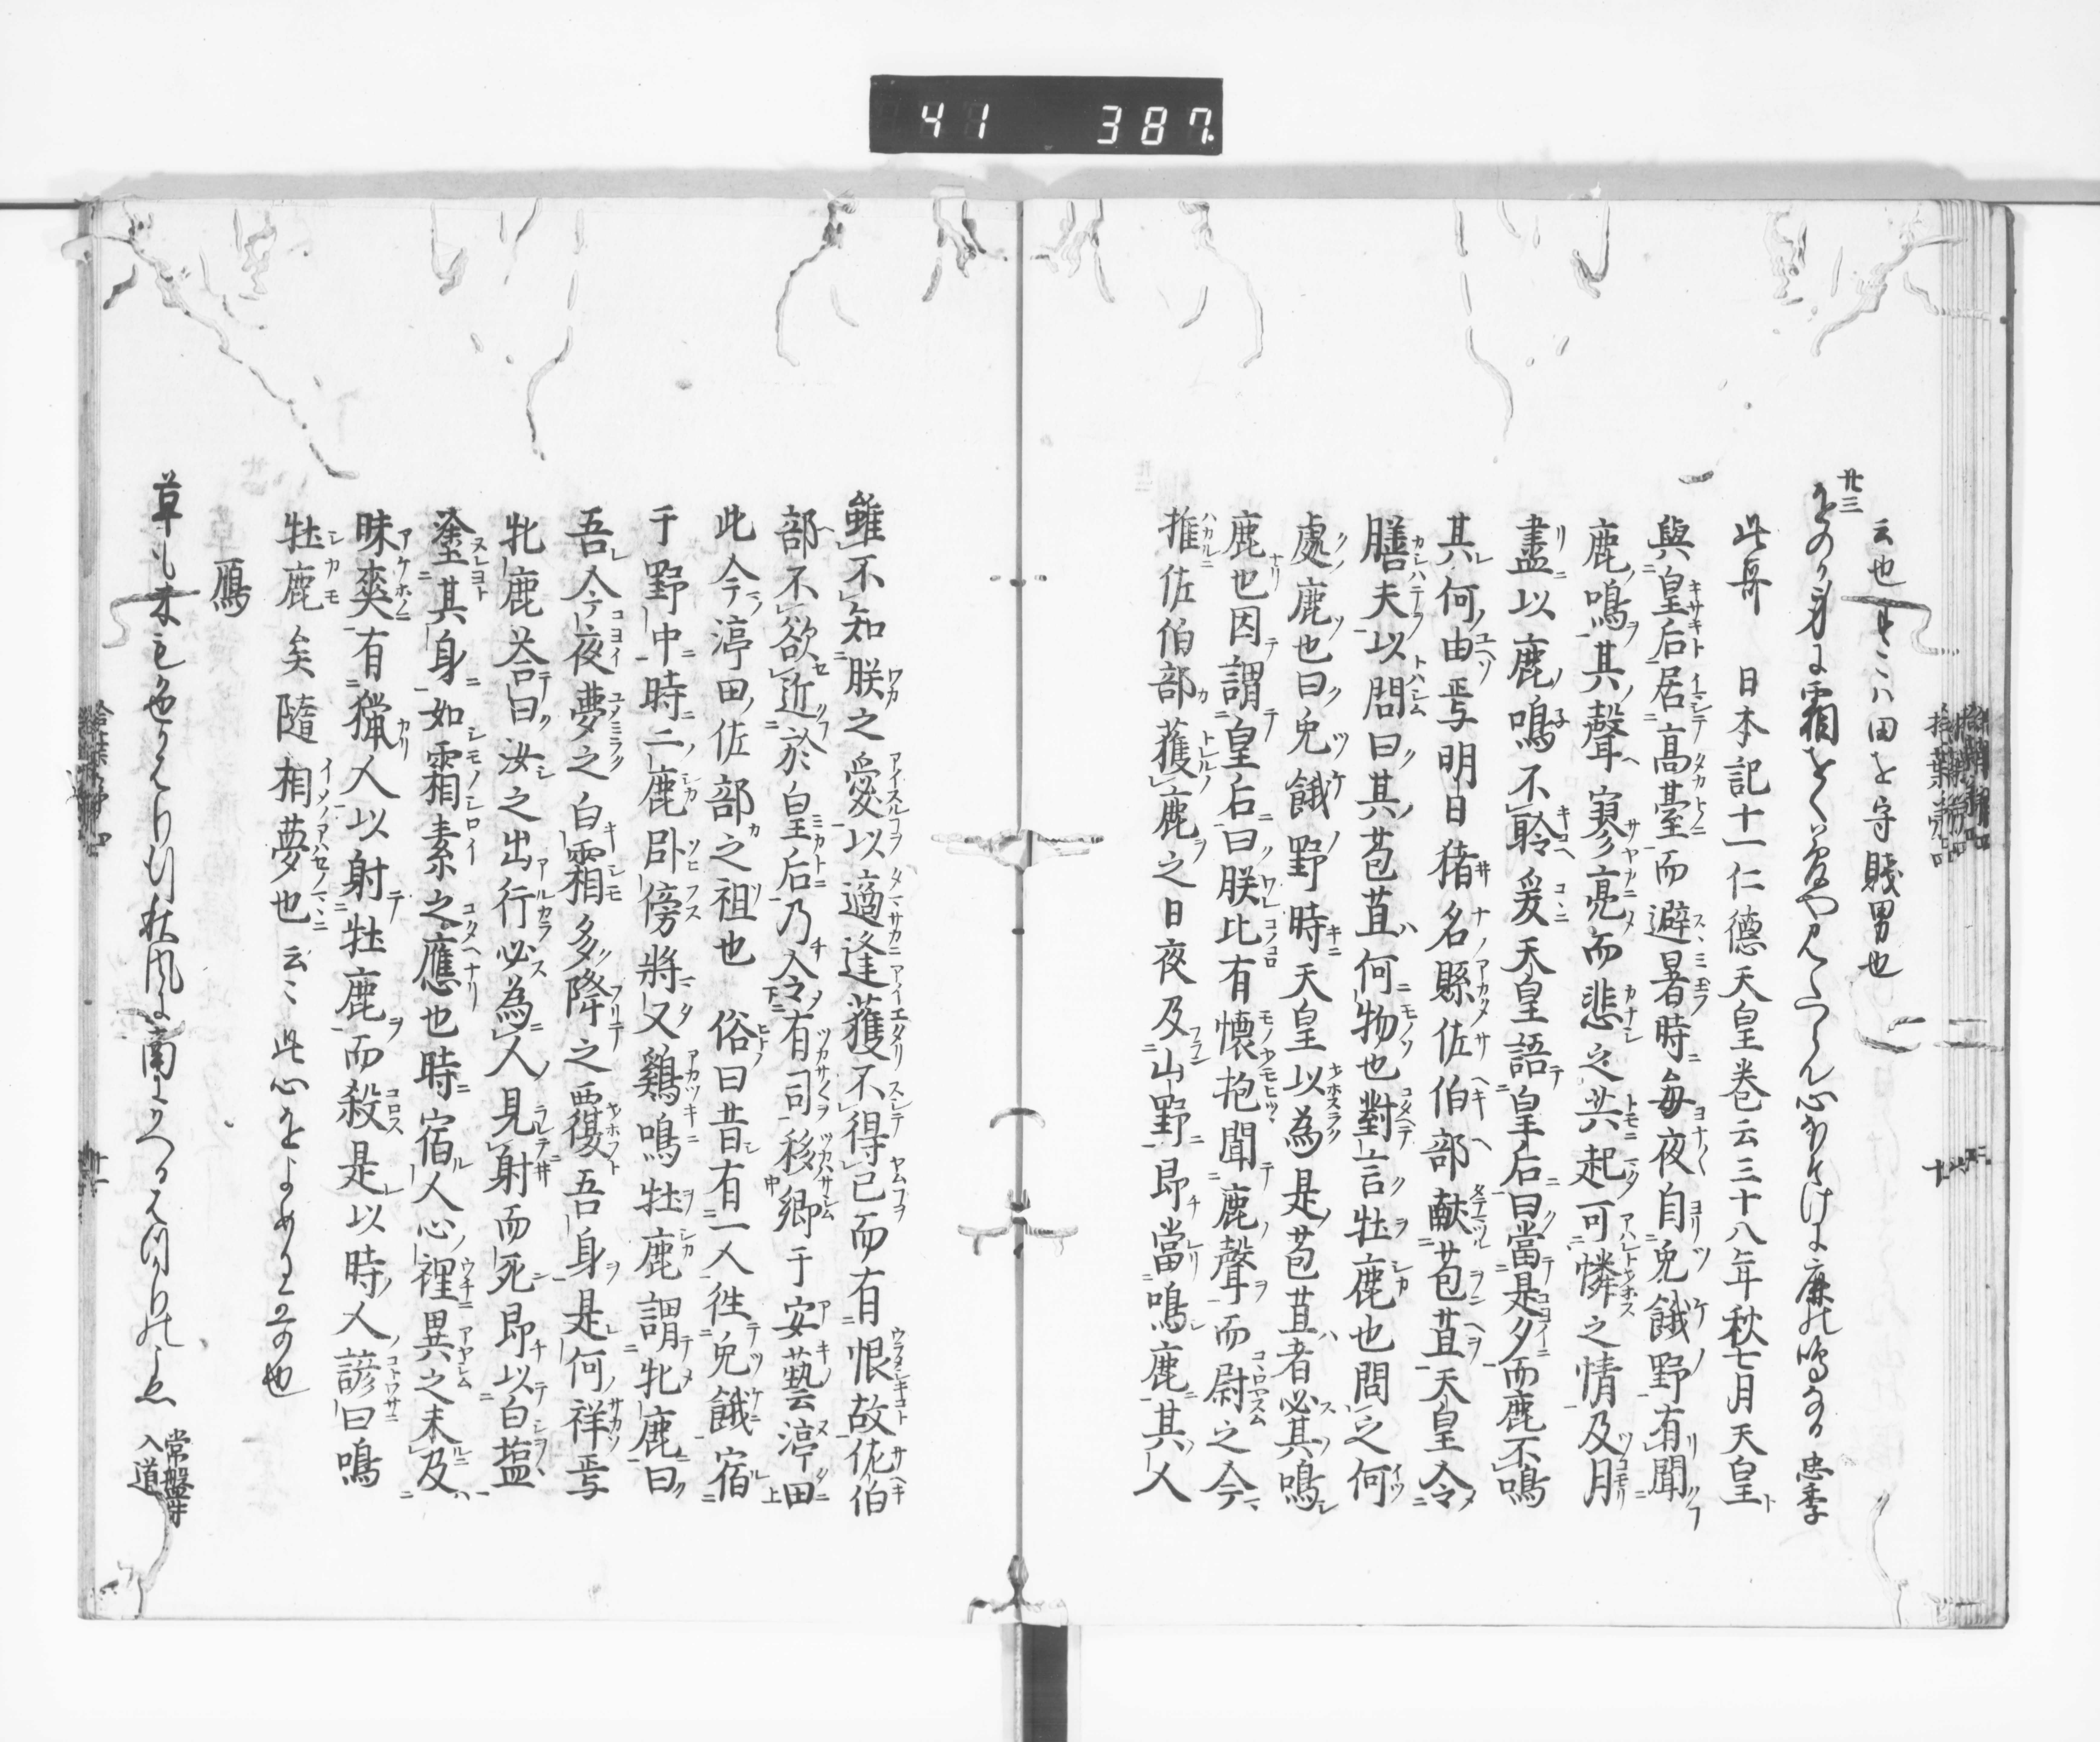 41 387
云也キミハ田を守賤男也
廿三 をのか身に霜をく夜やたつらん心ほそけに鹿の鳴なる 忠季
此哥 日本記十一仁徳天皇巻云三十八年秋七月天皇
與皇后居高臺而避暑時毎夜自兎餓野有聞
鹿鳴其聲寥亮而悲之共起可憐之情及月
盡以鹿鳴不聆爰天皇語皇后曰當是夕而鹿不鳴
其何由焉明日猪名縣佐伯部獻苞苴天皇令
膳夫以問曰其苞苴何物也對言牡鹿也問之何
處鹿也曰兎餓野時天皇以為是苞苴者必其鳴
鹿也因謂皇后曰朕比有懷抱聞鹿聲而尉之今
推佐伯部獲鹿之日夜及山野即當鳴鹿其人
雖不知朕之愛以適逢獲不得已而有恨故佐伯
部不欲近於皇后乃令有司移郷于安藝渟田
此今渟田佐部之祖也 俗曰昔有一人往兎餓宿
于野中時二鹿卧傍將又鷄鳴牡鹿謂牝鹿曰
吾今夜夢之白霜多降之覆吾身是何祥焉
牝鹿荅曰汝之出行必為人見射而死即以白塩
塗其身如霜素之應也時宿人心裡異之未及
昧爽有獵人以射牡鹿而殺是以時人諺曰鳴
牡鹿矣隨相夢也云〻此心をよめる哥也
鴈
草も木も色かはり行秋風に 常盤井入道